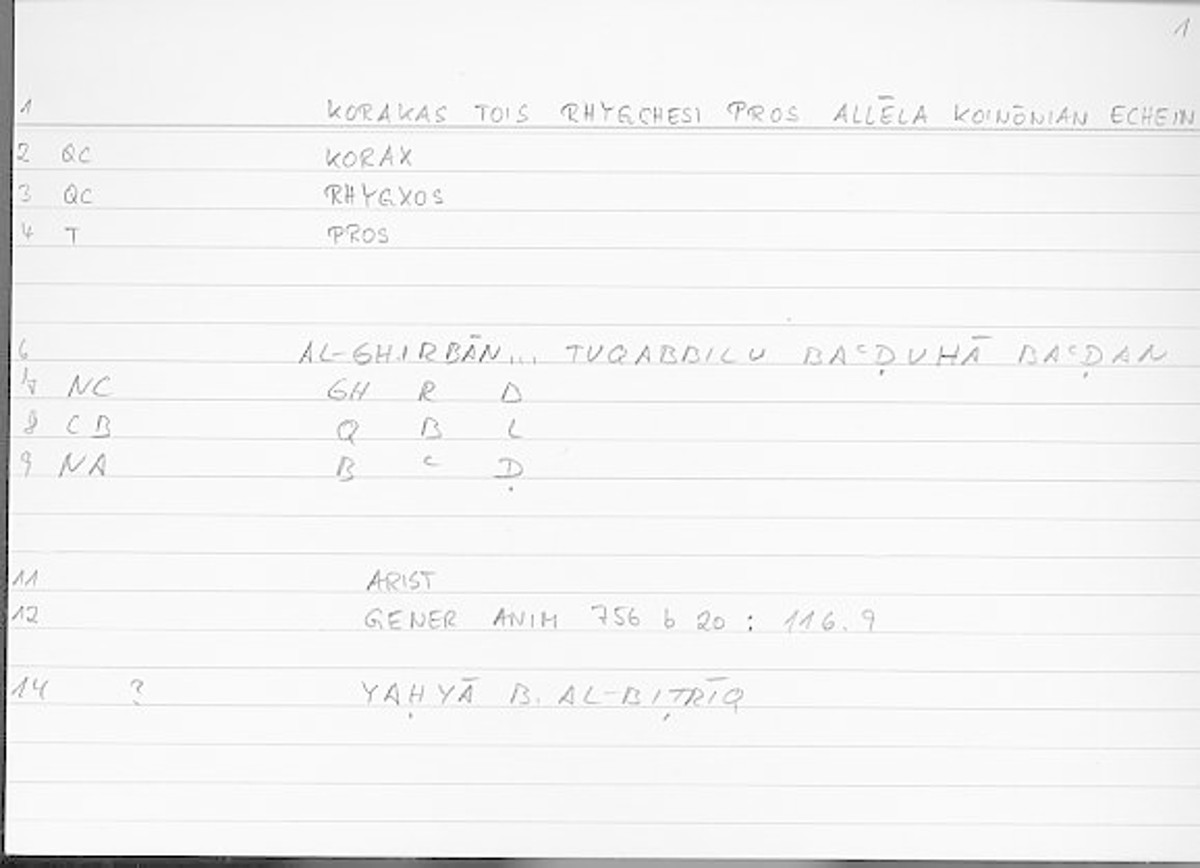 1
1 KORAKAS TOIS RHYGCHESI PROS ALLĒLA KOINŌNIAN ECHEIN
2 QC KORAX
3 QC RHYGXOS
4 T PROS
6 AL-GHIRBĀN... TUQABBILU BAᶜḌUHĀ BAᶜḌAN
7 NC GH R D
8 CB Q B L
9 NA B ᶜ Ḍ
11 ARIST
12 GENER ANIM 756 b 20 : 116.9
14 ? YAḤYĀ B. AL-BIṬRĪQ